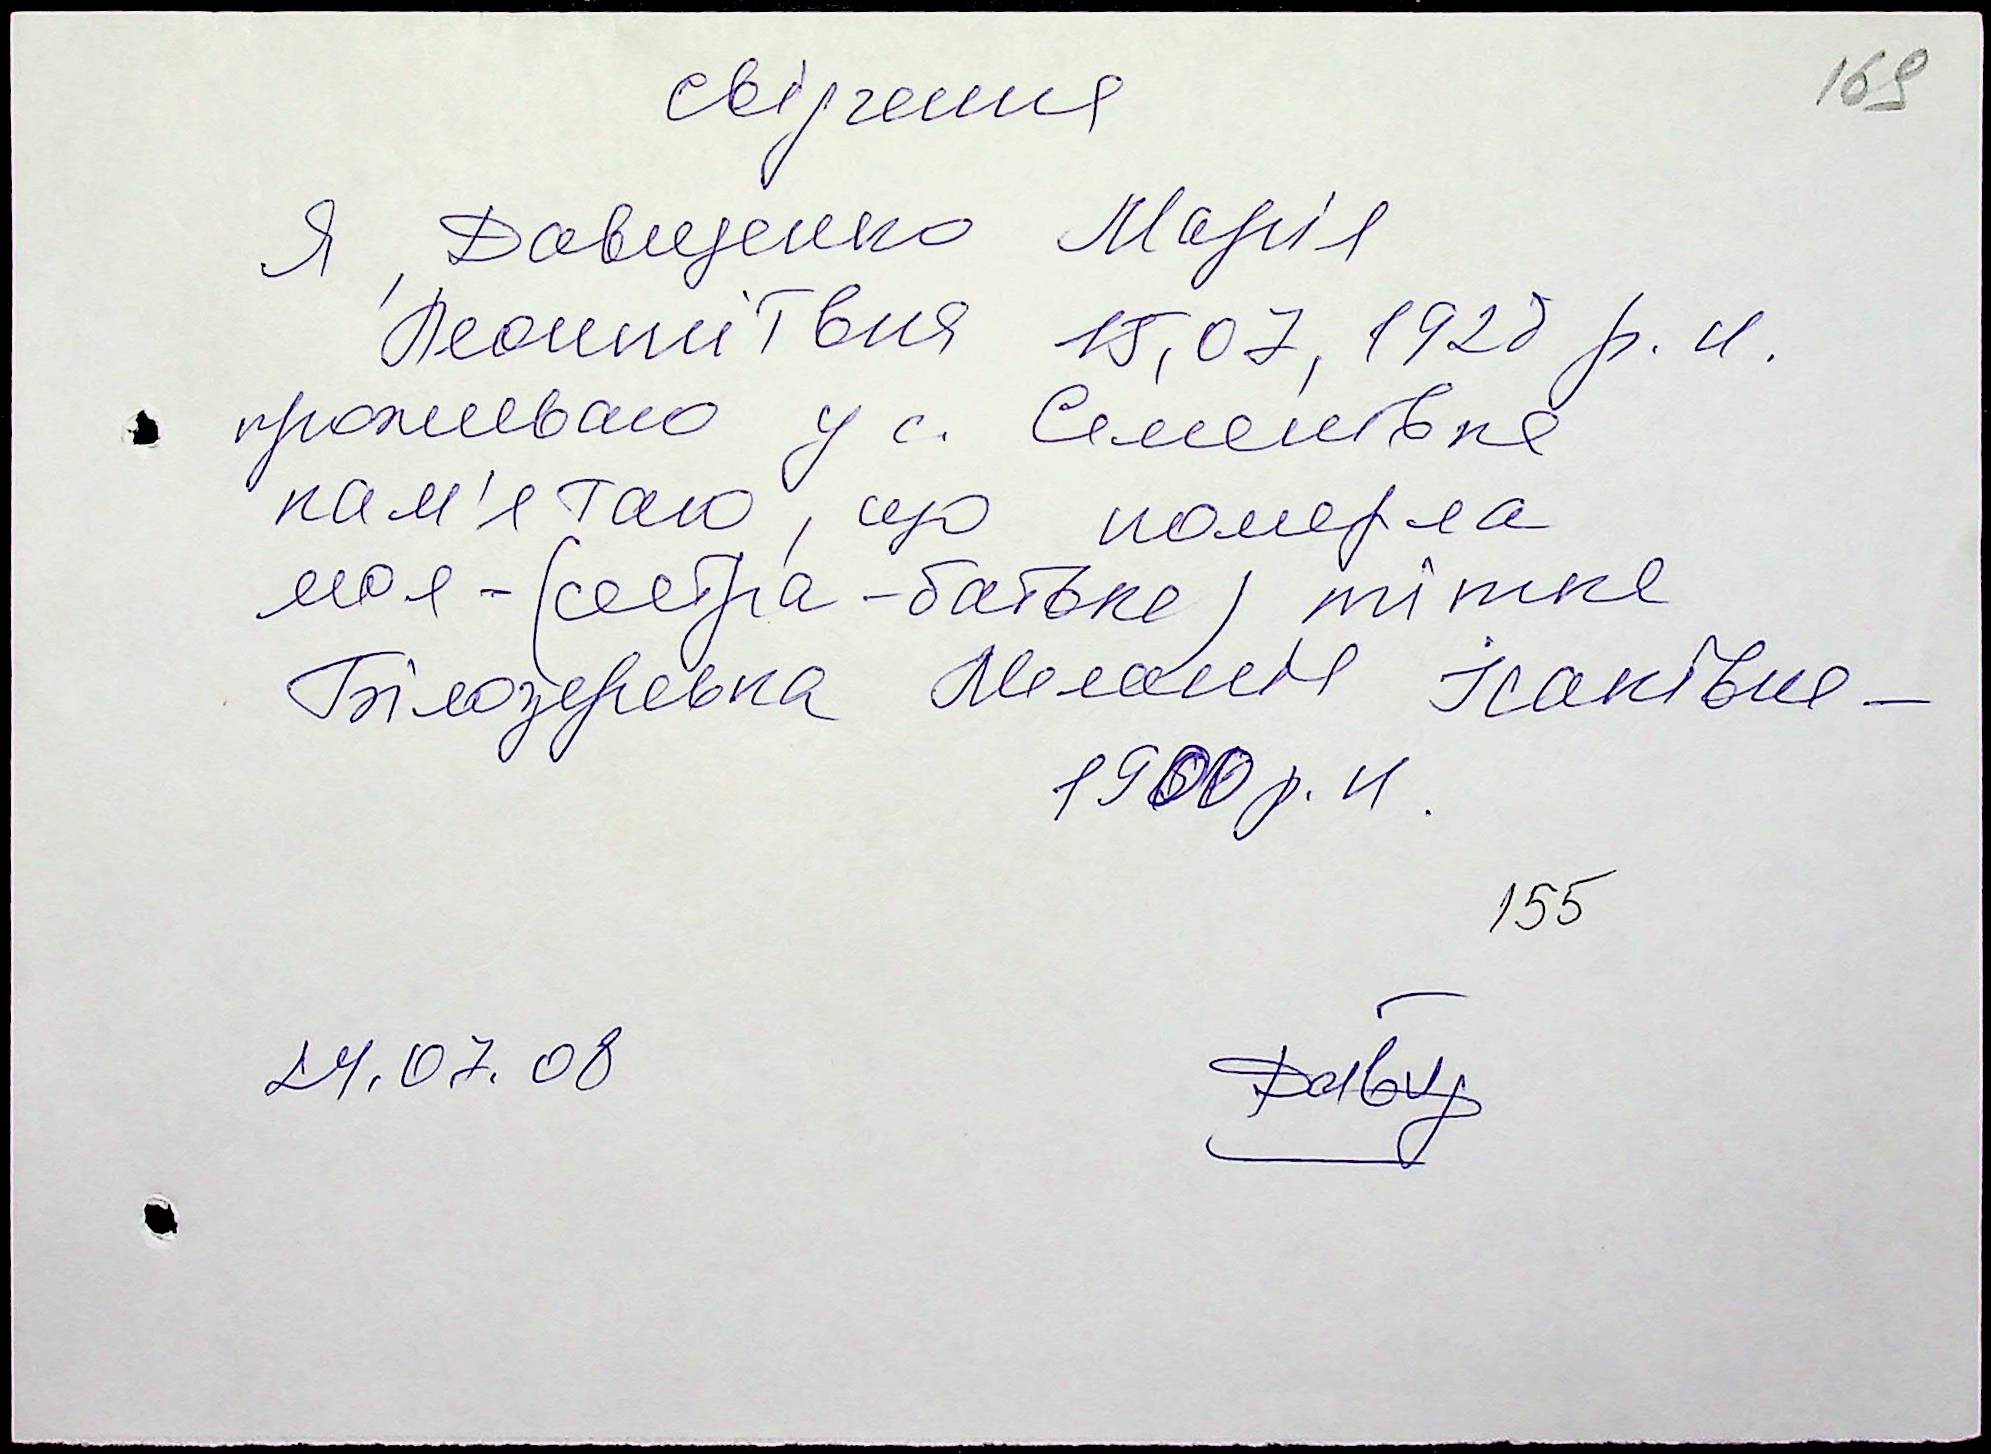 169
свідчення
Я, Давиденко Марія
Леонтіївна 15,07,1928 р. н.
проживаю у с. Семенівка
пам'ятаю, що померла
моя - (сестра - батька) тітка
Білозеревка Меланія Ісаківна -
1900 р. н.
155
24.07.08
Давид